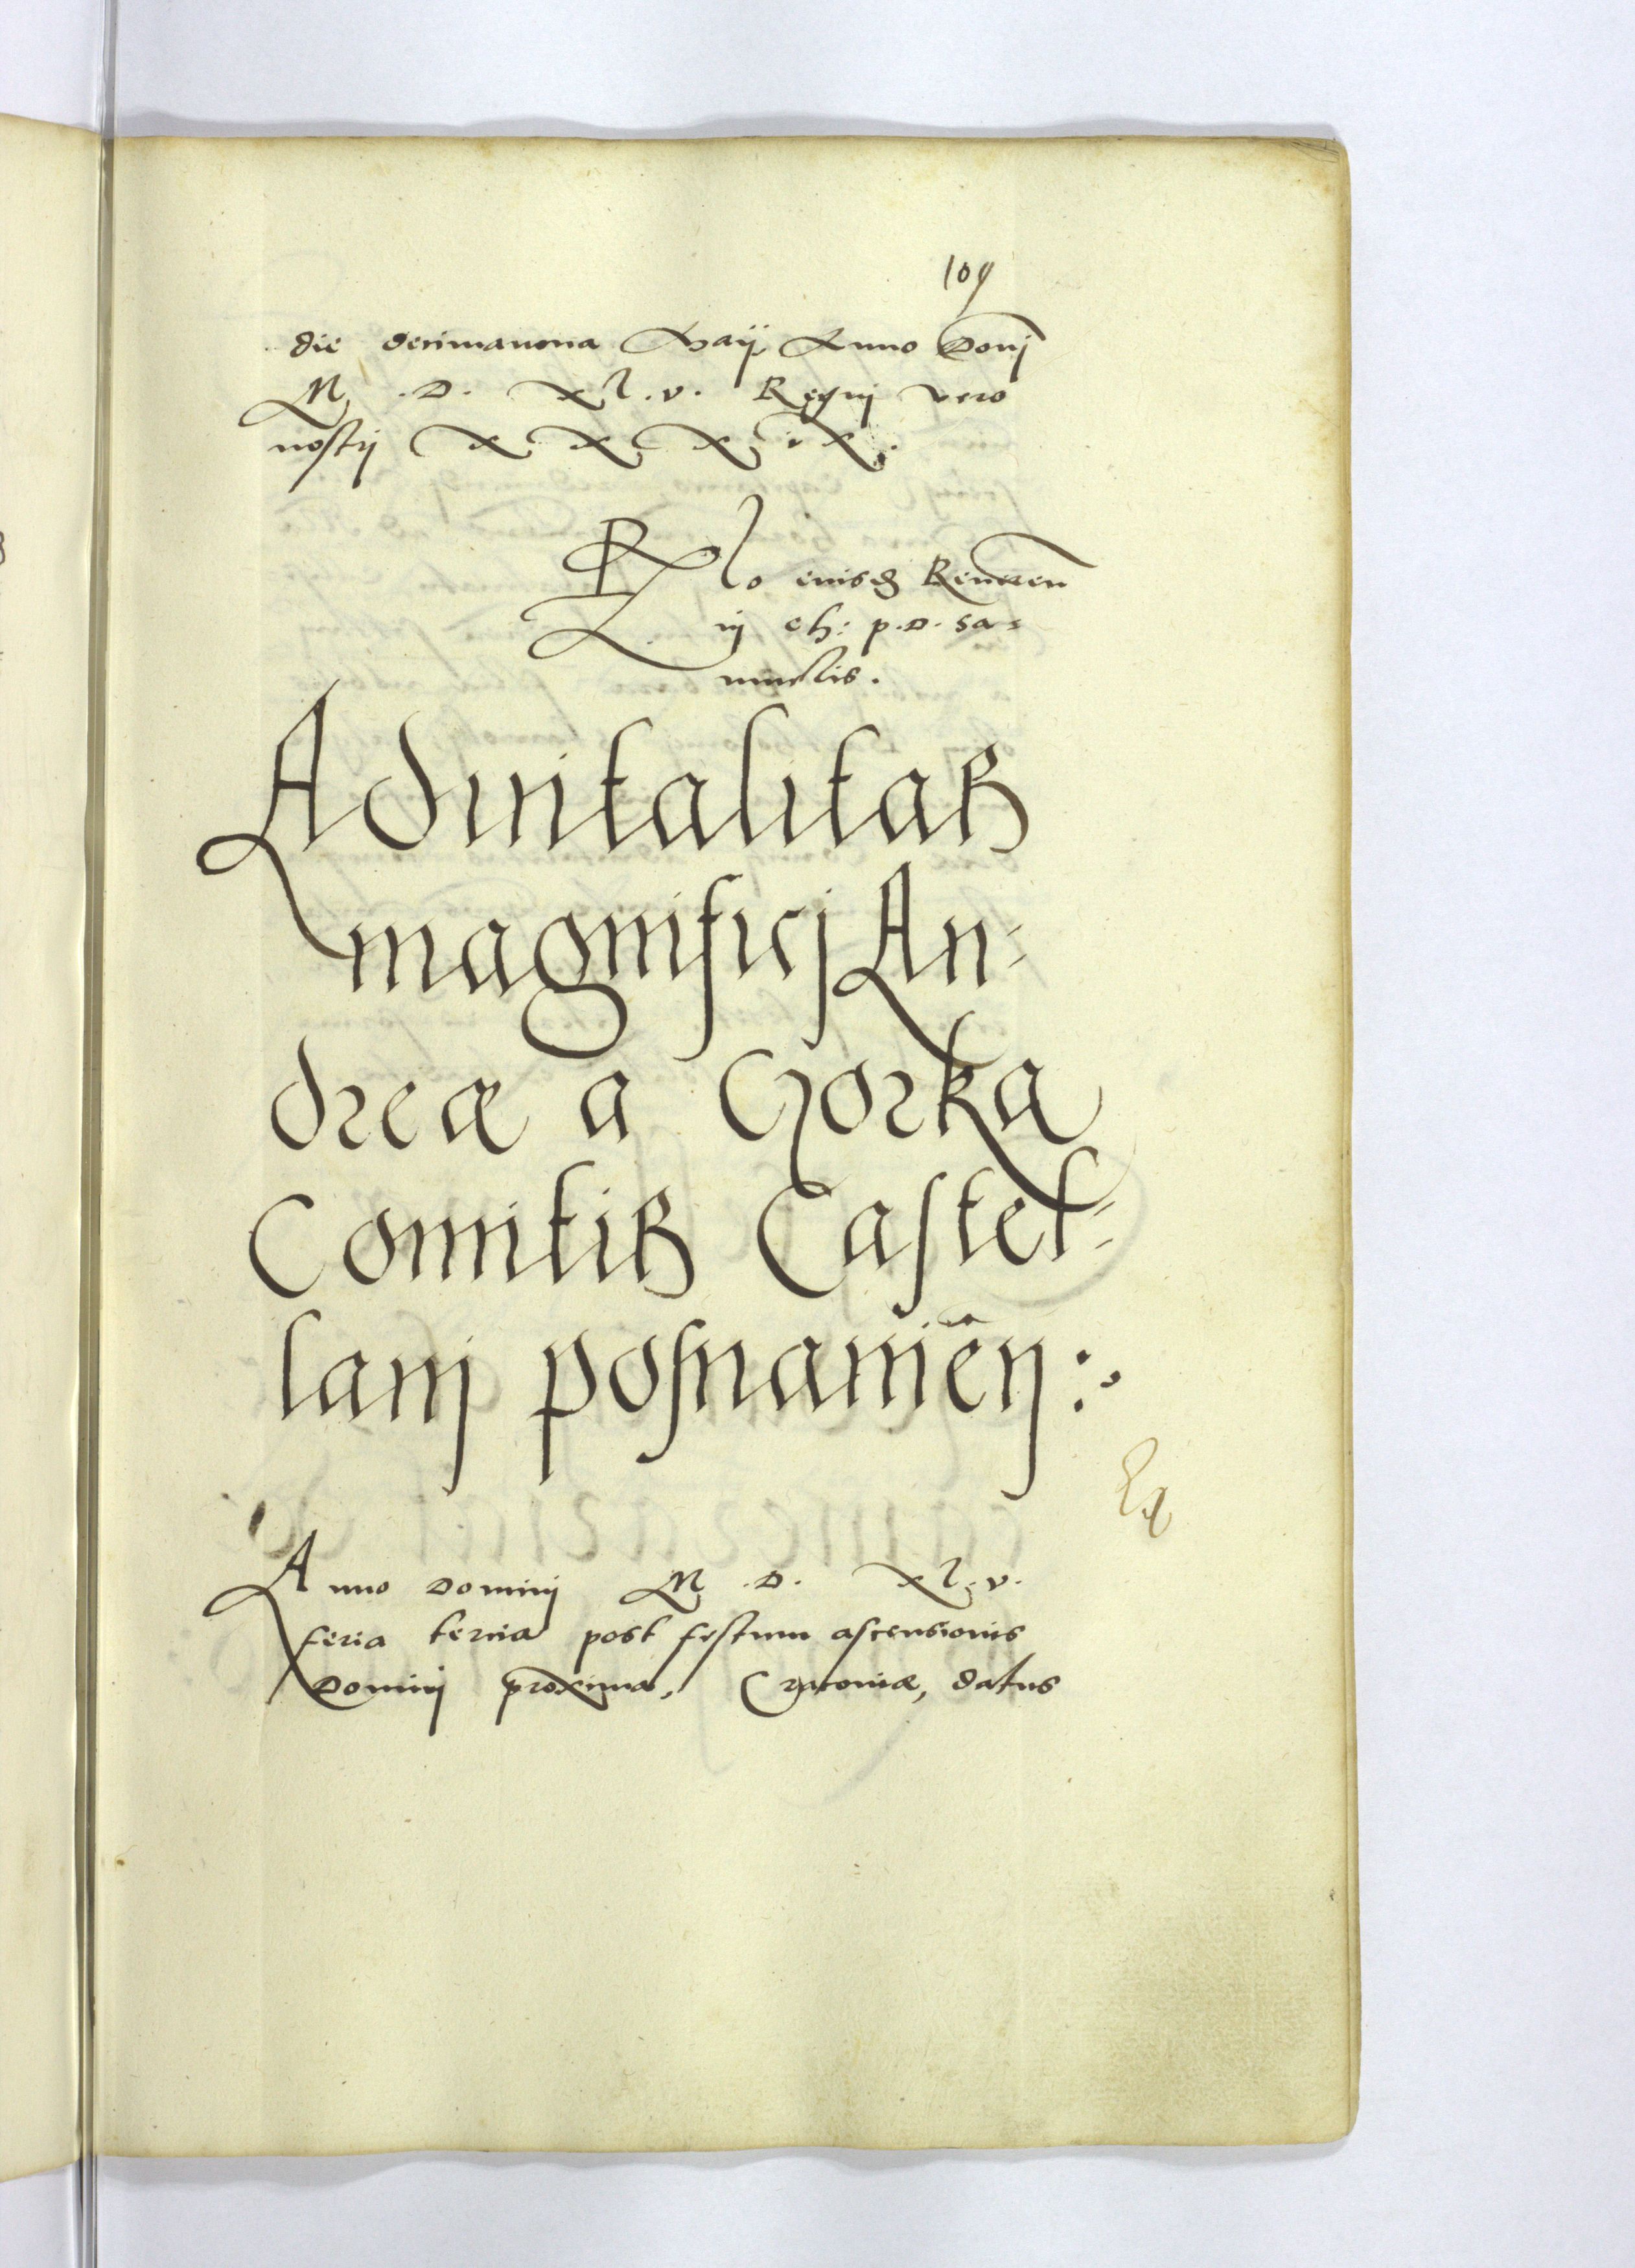 109
die decimanona Maij Anno Domj
M. D. Xl. v. Regnj vero
nostrj X X X i X.
Rlo eiusdem Reueren
in ch: p. D. Sa-
muelis.
Aduitalitas
magnificj An-
dreæ a Gorka
Comitis Castel-
lanj posnanień:
Ex
Anno Dominj M. D. Xl. v.
feria tercia post festum ascensionis
Dominj proxima, Cracouiæ, datus